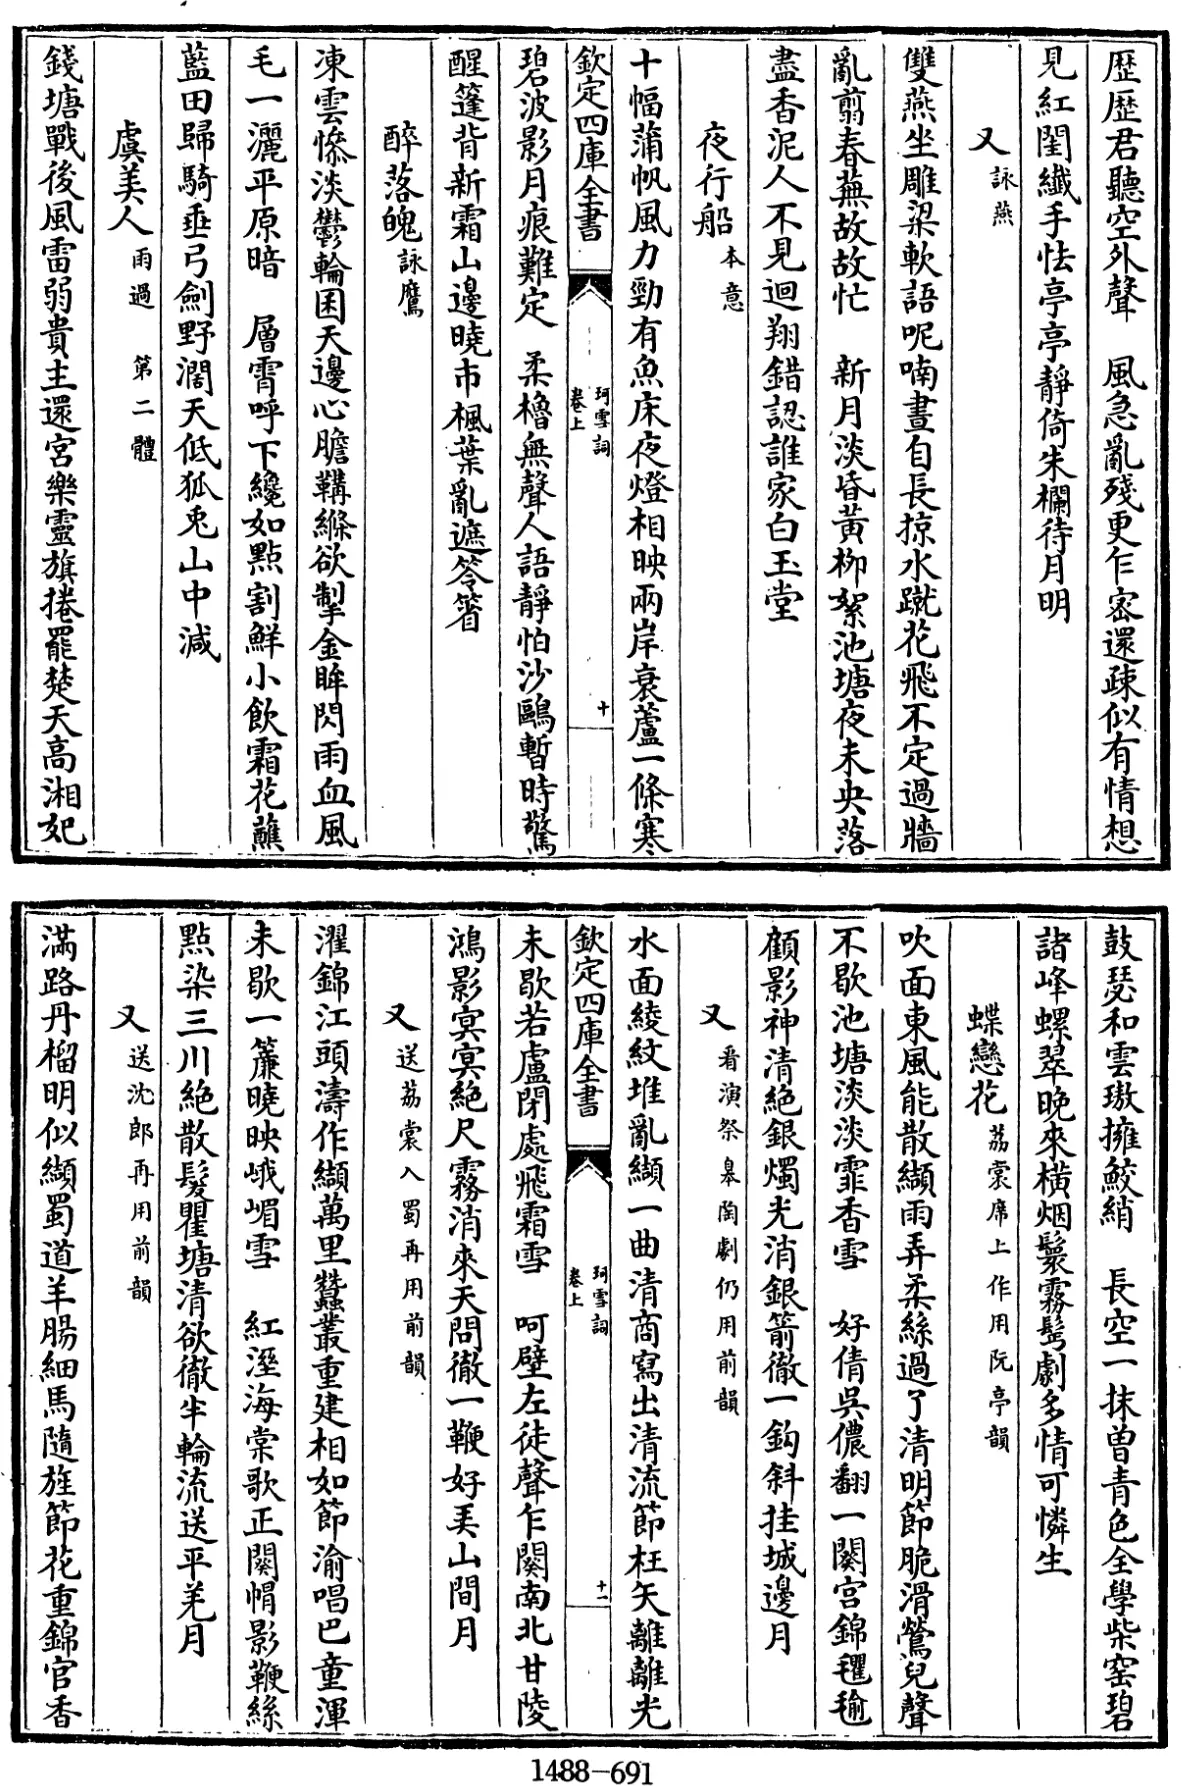 歴歴君聽空外聲　風急亂殘更乍宻還疎似有情想
見紅閨纖手怯亭亭靜倚朱欄待月明
又詠燕
雙燕坐雕梁軟語呢喃晝自長掠水蹴花飛不定過牆
亂翦春蕪故故忙　新月淡昏黄栁絮池塘夜未央落
盡香泥人不見迴翔錯認誰家白玉堂
夜行船本意
十幅蒲帆風力勁有魚床夜燈相映兩岸衰蘆一條寒
欽定四庫全書
珂雪詞
卷上
十
碧波影月痕難定　柔櫓無聲人語靜怕沙鷗暫時驚
醒篷背新霜山邊曉市楓葉亂遮笭箵
醉落魄詠鷹
凍雲慘淡鬱輪囷天邊心膽鞲縧欲掣金眸閃雨血風
毛一灑平原暗　層霄呼下纔如點割鮮小飲霜花蘸
藍田歸騎垂弓劍野濶天低狐兎山中減
虞美人雨過　第二體
錢塘戰後風雷弱貴主還宫樂靈旗捲罷楚天高湘妃
鼓瑟和雲璈擁鮫綃　長空一抹曽青色全學柴窑碧
諸峰螺翠晚來横烟鬟霧髩劇多情可憐生
蝶戀花荔裳席上作用阮亭韻
吹面東風能散纈雨弄柔絲過了清明節脆滑鶯兒聲
不歇池塘淡淡霏香雪　好倩吳儂翻一闋宫錦氍毹
顧影神清絶銀燭光消銀箭徹一鈎斜挂城邊月
又看演祭臯陶劇仍用前韻
水面綾紋堆亂纈一曲清商寫出清流節枉矢離離光
欽定四庫全書
珂雪詞
卷上
十一
未歇若盧閉處飛霜雪　呵壁左徒聲乍闋南北甘陵
鴻影冥冥絶尺霧消來天問徹一鞭好美山間月
又送荔裳入蜀再用前韻
濯錦江頭濤作纈萬里蠶叢重建相如節渝唱巴童渾
未歇一簾曉映峨嵋雪　紅溼海棠歌正闋帽影鞭絲
點染三川絶散髮瞿塘清欲徹半輪流送平羌月
又送沈郎再用前韻
滿路丹榴明似纈蜀道羊腸細馬隨旌節花重錦官香
1488-691